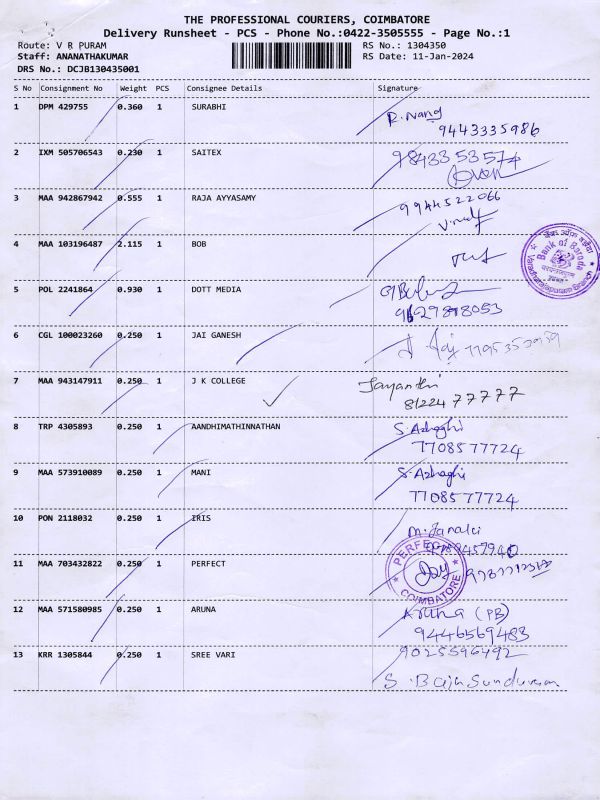 THE PROFESSIONAL COURIERS, COIMBATORE
Delivery Runsheet - PCS - Phone No.:0422-3505555 - Page No.:1
Route: V R PURAM RS No.: 1304350
Staff: ANANATHAKUMAR RS Date: 11-Jan-2024
DRS No.: DCJB130435001
S No Consignment No Weight PCS Consignee Details Signature
1 DPM 429755 0.360 1 SURABHI
9443335986
2 IXM 505706543 0.230 1 SAITEX 9843353574
3 MAA 942867942 0.555 1 RAJA AYYASAMY 9944522066
4 MAA 103196487 2.115 1 BOB
Bank of Baroda
5 POL 2241864 0.930 1 DOTT MEDIA
6 CGL 100023260 0.250 1 JAI GANESH
7 MAA 943147911 0.250 1 J K COLLEGE Jayanthi
8122477777
8 TRP 4305893 0.250 1 AANDHIMATHINNATHAN S. Azhaghi
7708577724
9 MAA 573910089 0.250 1 MANI S. Azhaghi
7708577724
10 PON 2118032 0.250 1 IRIS M. Janaki
11 MAA 703432822 0.250 1 PERFECT PERFECT
COIMBATORE
12 MAA 571580985 0.250 1 ARUNA Aruna (PB)
9446569483
13 KRR 1305844 0.250 1 SREE VARI 9025596492